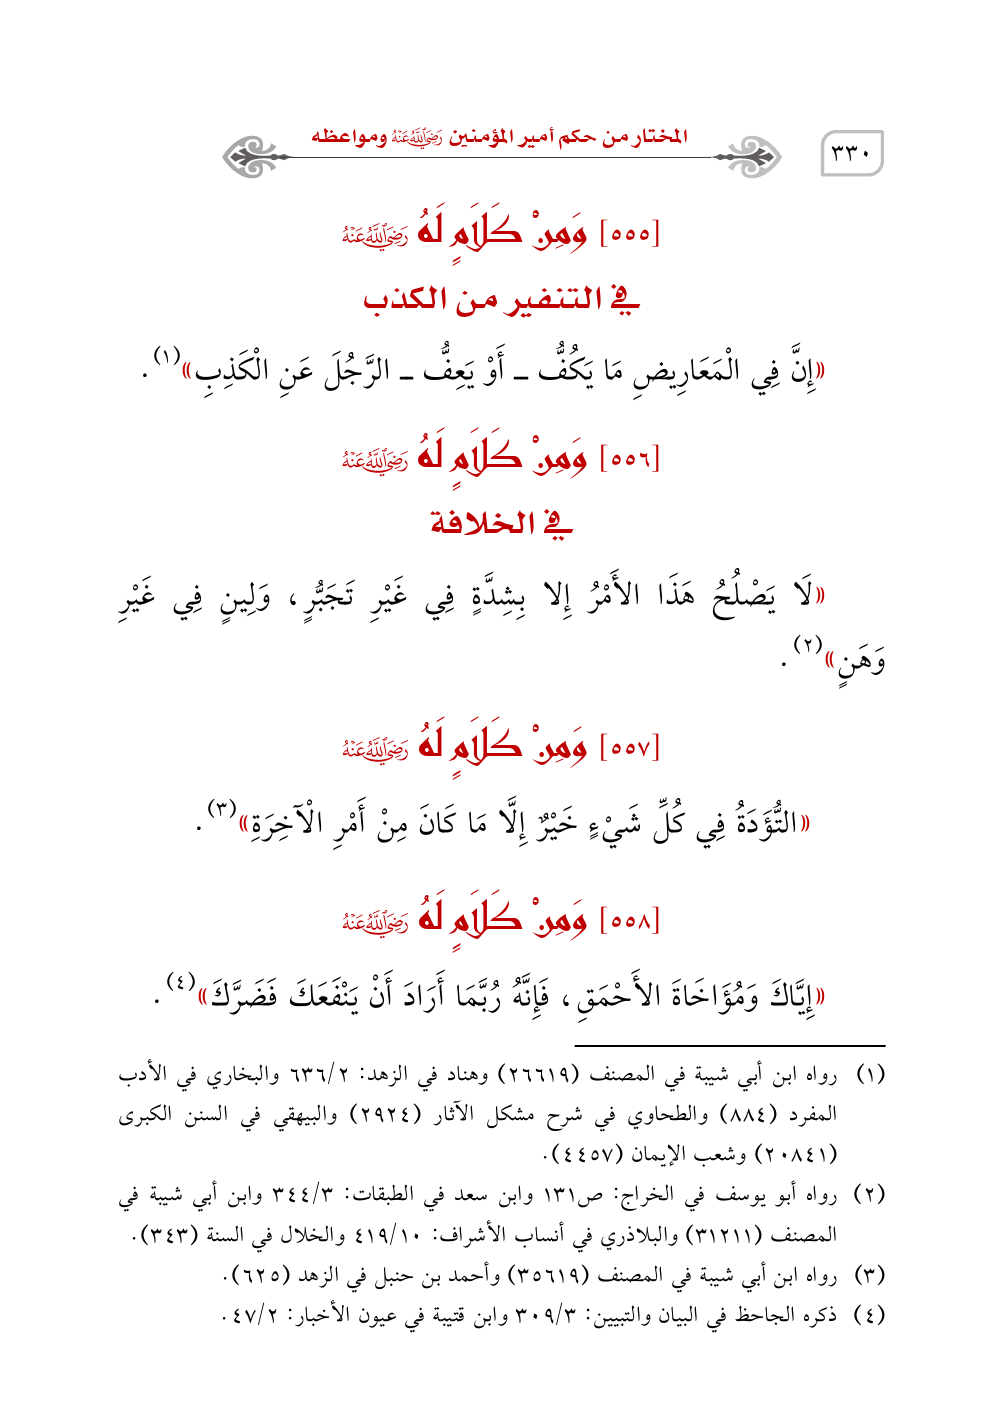 ٣٣٠
المختار من حكم أمير المؤمنين رَضِيَ اللَّهُ عَنْهُ ومواعظه
[٥٥٥] وَمِنْ كَلَامٍ لَهُ رَضِيَ اللَّهُ عَنْهُ
في التنفير من الكذب
«إِنَّ فِي الْمَعَارِيضِ مَا يَكُفُّ ـ أَوْ يَعِفُّ ـ الرَّجُلَ عَنِ الْكَذِبِ»(١).
[٥٥٦] وَمِنْ كَلَامٍ لَهُ رَضِيَ اللَّهُ عَنْهُ
في الخلافة
«لَا يَصْلُحُ هَذَا الأَمْرُ إِلا بِشِدَّةٍ فِي غَيْرِ تَجَبُّرٍ، وَلِينٍ فِي غَيْرِ
وَهَنٍ»(٢).
[٥٥٧] وَمِنْ كَلَامٍ لَهُ رَضِيَ اللَّهُ عَنْهُ
«التُّؤَدَةُ فِي كُلِّ شَيْءٍ خَيْرٌ إِلَّا مَا كَانَ مِنْ أَمْرِ الْآخِرَةِ»(٣).
[٥٥٨] وَمِنْ كَلَامٍ لَهُ رَضِيَ اللَّهُ عَنْهُ
«إِيَّاكَ وَمُؤَاخَاةَ الأَحْمَقِ، فَإِنَّهُ رُبَّمَا أَرَادَ أَنْ يَنْفَعَكَ فَضَرَّكَ»(٤).
(١) رواه ابن أبي شيبة في المصنف (٢٦٦١٩) وهناد في الزهد: ٦٣٦/٢ والبخاري في الأدب
المفرد (٨٨٤) والطحاوي في شرح مشكل الآثار (٢٩٢٤) والبيهقي في السنن الكبرى
(٢٠٨٤١) وشعب الإيمان (٤٤٥٧).
(٢) رواه أبو يوسف في الخراج: ص١٣١ وابن سعد في الطبقات: ٣٤٤/٣ وابن أبي شيبة في
المصنف (٣١٢١١) والبلاذري في أنساب الأشراف: ٤١٩/١٠ والخلال في السنة (٣٤٣).
(٣) رواه ابن أبي شيبة في المصنف (٣٥٦١٩) وأحمد بن حنبل في الزهد (٦٢٥).
(٤) ذكره الجاحظ في البيان والتبيين: ٣٠٩/٣ وابن قتيبة في عيون الأخبار: ٤٧/٢.